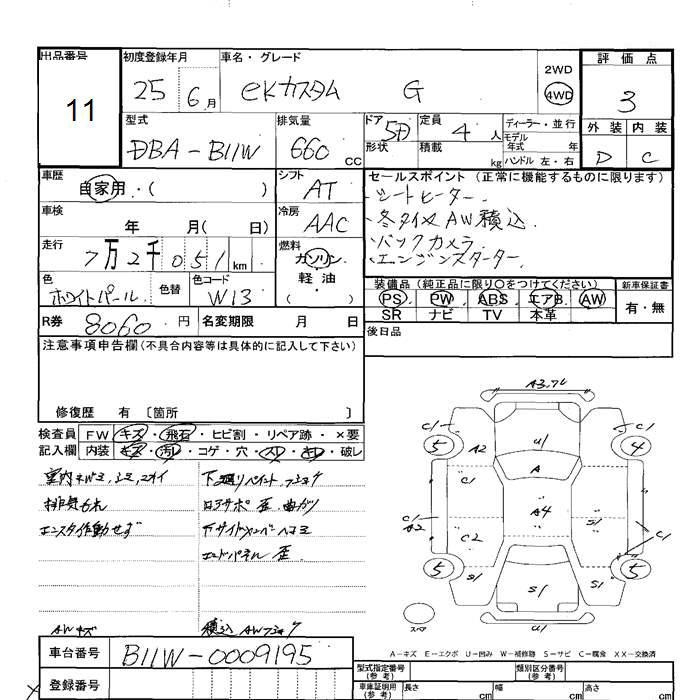 出品番号 初度登録年月 車名・グレード 評価点
11 25 6月 eKカスタム G 2WD 4WD 3
型式 排気量 ドア 5D 定員 4人 ディーラー・並行 外装 内装
DBA-B11W 660 CC 形状 積載 kg モデル年式 年 ハンドル 左・右 D C
車歴 自家用・( ) シフト AT セールスポイント (正常に機能するものに限ります)
・シートヒーター
車検 年 月( 日) 冷房 AAC ・冬タイヤAW積込
・バックカメラ
走行 7万2千051 km 燃料 ガソリン・軽油・( ) ・エンジンスターター
色 ホワイトパール 色替 色コード W13 装備品 (純正品に限り○をつけてください) 新車保証書
PS PW ABS エアB AW 有・無
SR ナビ TV 本革
R券 8060円 名変期限 月 日 後日品
注意事項申告欄(不具合内容等は具体的に記入して下さい)
修復歴 有 〔箇所 〕
検査員 FW キズ・飛石・ヒビ割・リペア跡・×要
記入欄 内装 キズ・汚レ・コゲ・穴・スレ・キレ・破レ
排気モれ
エンスタ作動せず
ロアサポ 歪、曲がり
エンドパネル 歪
AWキズ
積込AW
A3.7L
C1 5 A2 U1 4 C1
C1 A
C1 A2 C2 A4 S1 C1
5 S1 S1 S1 5
スペア
A-キズ E-エクボ U-凹み W-補修跡 S-サビ C-腐食 XX-交換済
車台番号 B11W-0009195
登録番号
型式指定番号 (参考) 類別区分番号 (参考)
車庫証明用 (参考) 長さ cm 幅 cm 高さ cm